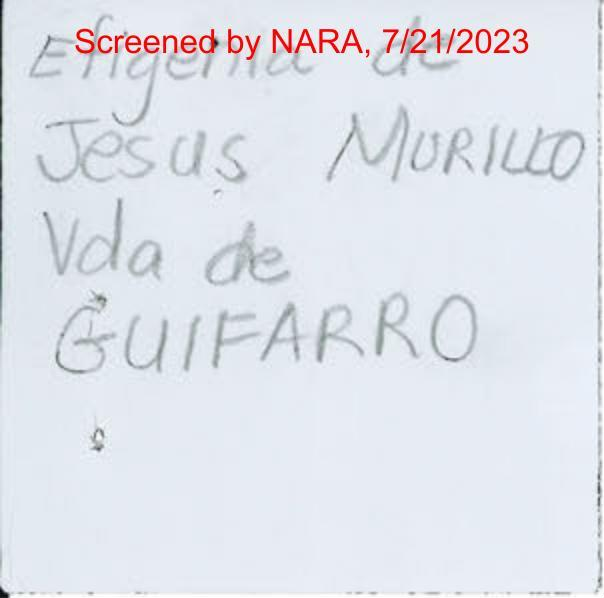 Screened by NARA, 7/21/2023
Efigenia de
Jesus MURILLO
Vda de
GUIFARRO